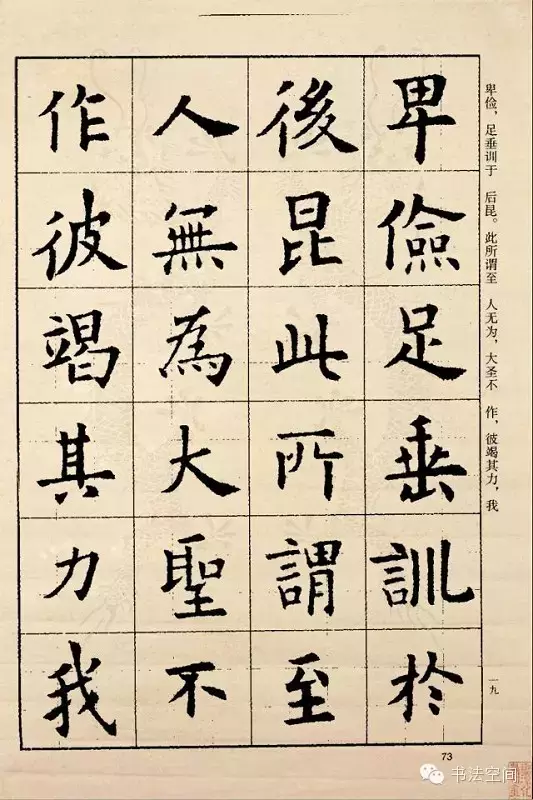 卑儉足垂訓於
後昆此所謂至
人無為大聖不
作彼竭其力我
卑俭，足垂训于 后昆。此所谓至 人无为，大圣不 作，彼竭其力，我
一九
73
书法空间